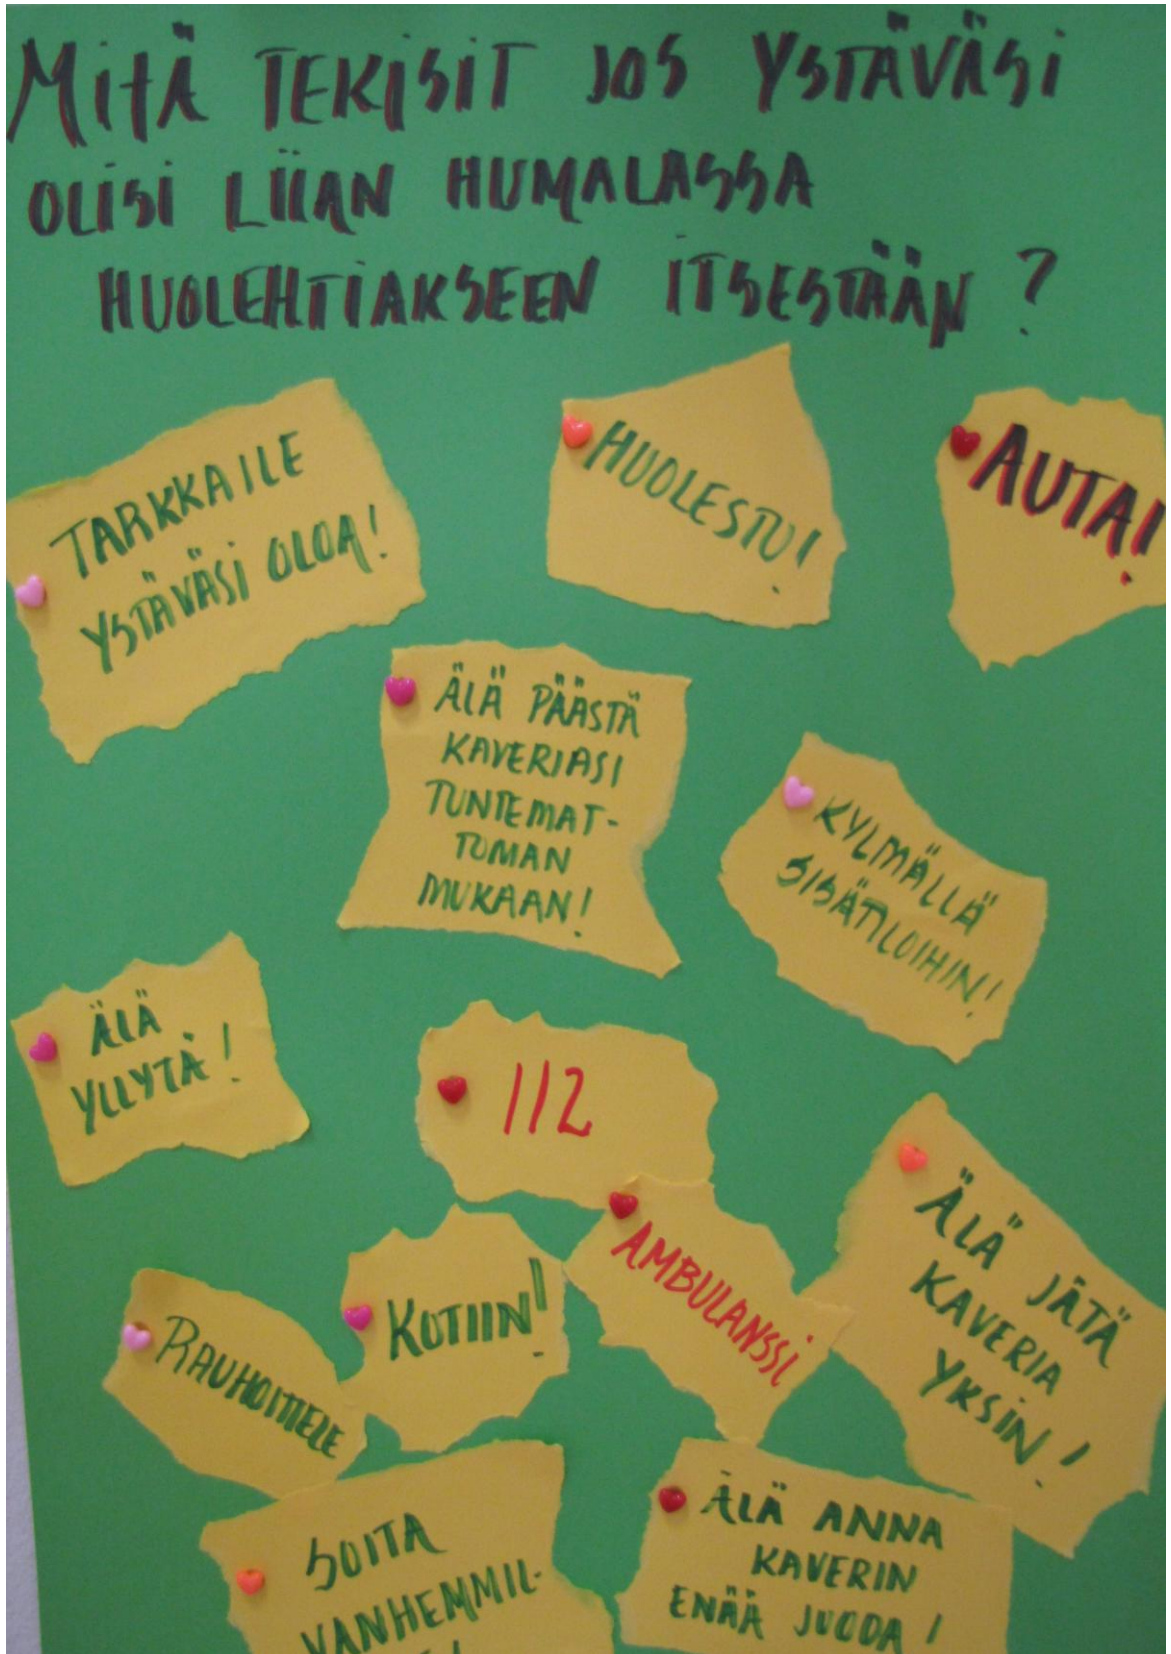 MITÄ TEKISIT JOS YSTÄVÄSI
OLISI LIIAN HUMALASSA
HUOLEHTIAKSEEN ITSESTÄÄN?
TARKKAILE
YSTÄVÄSI OLOA!
HUOLESTU!
AUTA!
ÄLÄ PÄÄSTÄ
KAVERIASI
TUNTEMAT-
TOMAN
MUKAAN!
KYLMÄLLÄ
SISÄTILOIHIN!
ÄLÄ
YLLYTÄ!
112
AMBULANSSI
ÄLÄ JÄTÄ
KAVERIA
YKSIN!
KOTIIN!
RAUHOITTELE
SOITA
VANHEMMIL-
ÄLÄ ANNA
KAVERIN
ENÄÄ JUODA!